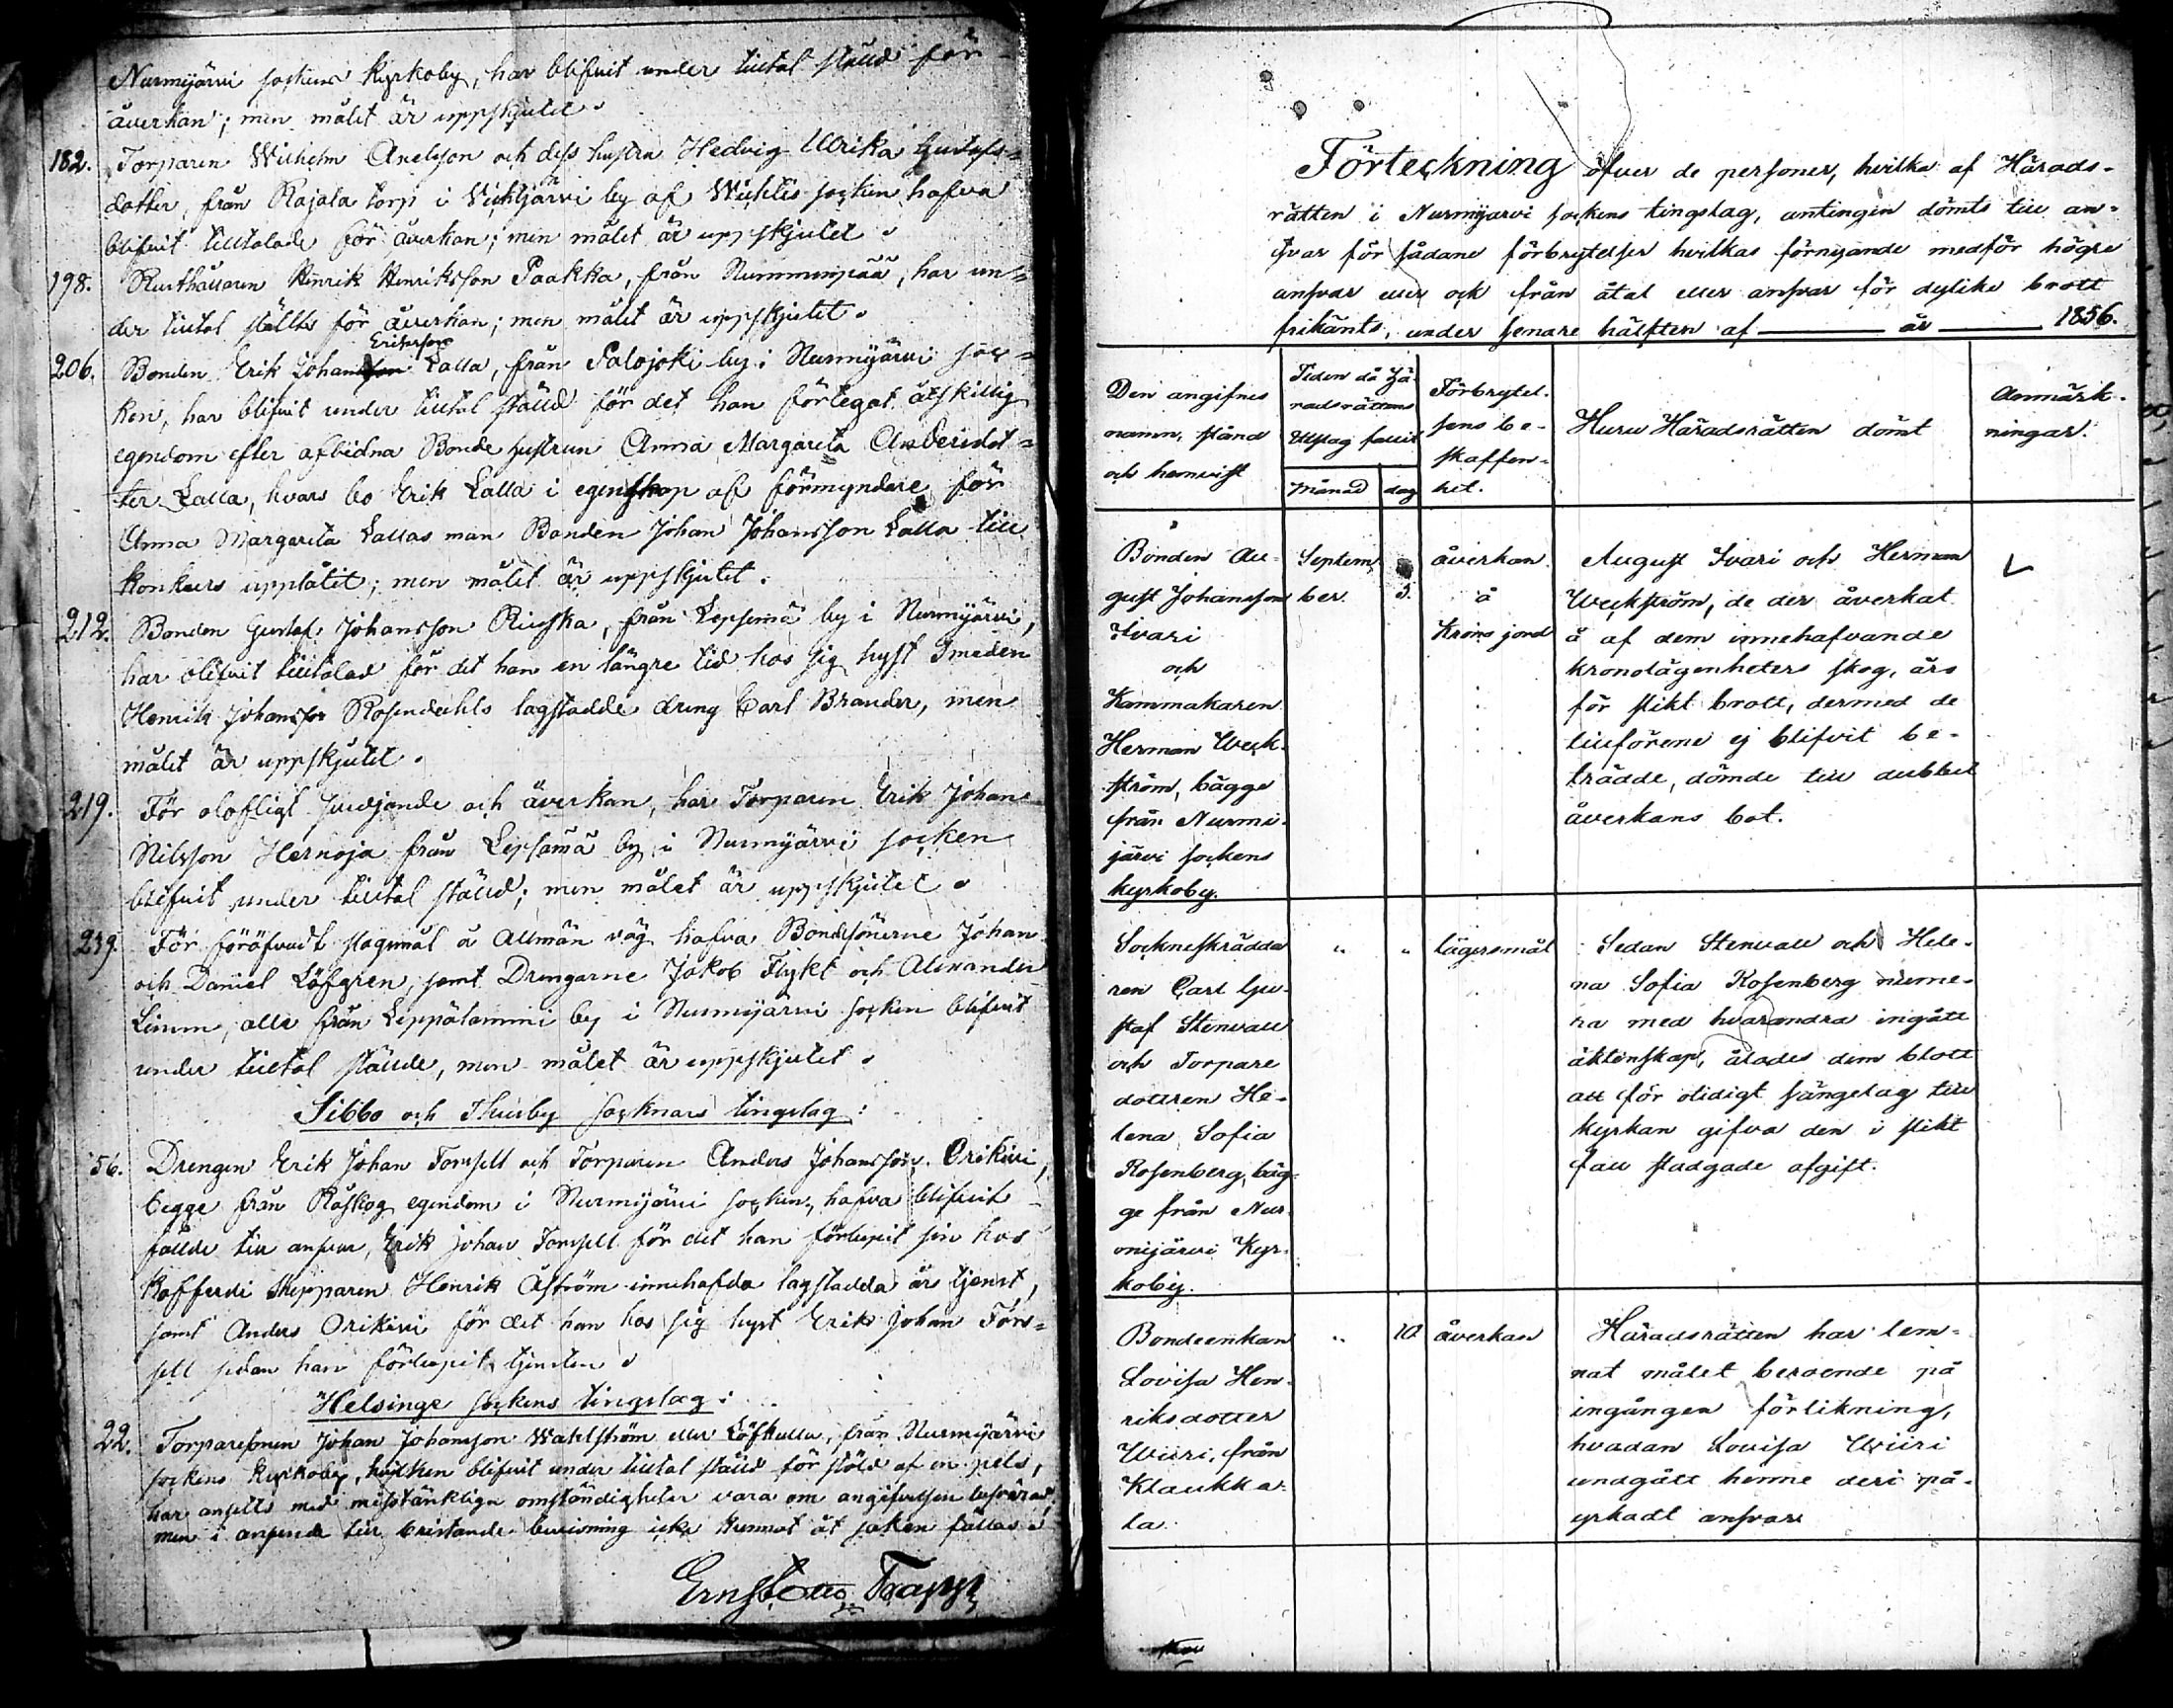 Nurmijärvi sockens kyrkoby, har blifvit under tilltal ställd för
åverkan; men målet är uppskjutet.
182. Torparen Wilhelm Axelsson och dess hustru Hedvig Ulrika Gustafs-
dotter, från Rajala torp i Vichtjärvi by af Wichtis socken hafva
blifvit tilltalade för åverkan; men målet är uppskjutet.
198. Rusthållaren Henrik Henriksson Paakka, från Nummenpää, har un-
der tilltal ställts för åverkan; men målet är uppskjutet.
Eriksson
206. Bonden Erik Johansson Lalla, från Palojoki by i Nurmijärvi soc-
ken, har blifvit under tilltal ställd för det han förlegat åtskillig
egendom efter aflidna Bonde hustrun Anna Margareta Andersdot-
ter Lalla, hvars bo Erik Lalla i egenskap af förmyndare för
Anna Margareta Lallas man Bonden Johan Johansson Lalla till
konkurs upplåtit; men målet är uppskjutet.
212. Bonden Gustaf Johansson, från Lepsemä by i Nurmijärvi,
har blifvit tilltalad för det han en längre tid hos sig hyst Smeden
Henrik Johansson Rosendahls lagstadde dreng Carl Brander, men
målet är uppskjutet.
219. För olofligt svedjande och åverkan, har Torparen Erik Johan
Nilsson Hernoja från Lepsämä by i Nurmijärvi socken
blifvit under tilltal ställd; men målet är uppskjutet.
239. För föröfvadt slagsmål å allmän väg hafva Bondesönerne Johan
och Daniel Löfgren, samt Drengarne Jakob Flykt och Alexander
Limm, alla från Leppälammi by i Nurmijärvi socken blifvit
under tilltal ställde, men målet är uppskjutet.
Sibbo och Thusby socknars tingslag:
56. Drengen Erik Johan Forssell och Torparen Anders Johansson Orikivi,
begge från Råskog egendom i Nurmijärvi socken, hafva blifvit
fällde till ansvar, Erik Johan Forssell för det han förlupit sin hos
Kofferdi Skepparen Henrik Åström innehafda lagstadda års tjenst,
samt Anders Orikivi för det han hos sig hyst Erik Johan Fors-
sell sedan han förlupit tjensten.
Helsinge sockens tingslag:
22. Torparesonen Johan Johansson Wahlström eller Löfkulla, från Nurmijärvi
sockens kyrkoby, hvilken blifvit under tilltal ställd för stöld af en pels,
har ansetts med misstänkliga omständigheter vara om angifvelsen besvärad,
men i anseende till bristande bevisning icke kunnat åt saken fällas.
Ernst Otto Trapp
Förteckning öfver de personer, hvilka af Härads-
rätten i Nurmijärvi sockens tingslag, antingen dömts till an-
svar för sådane förbrytelser hvilkas förnyande medför högre
ansvar eller ock från åtal eller ansvar för dylika brott
frikänts, under senare hälften af år 1856.
Den angifnes
namn, stånd
och hemvist
Tiden då Hä-
radsrättens
Utslag fallit
Månad dag
Förbrytel-
sens be-
skaffen-
het.
Huru Häradsrätten dömt
Anmärk-
ningar.
Bonden Au-
gust Johansson
Ivari
och
Kammakaren
Herman Weck-
ström, bägge
från Nurmi-
järvi sockens
kyrkoby.
Septem-
ber. 5.
åverkan
å
Krono jord
August Ivari och Herman
Weckström, de der åverkat
å af dem innehafvande
kronolägenheters skog, äro
för slikt brott, dermed de
tillförene ej blifvit be-
trädde, dömde till dubbel
åverkans bot.
Sockneskrädda
ren Carl Gu-
staf Stenvall
och Torpare
dottren He-
lena Sofia
Rosenberg, bäg-
ge från Nur-
mijärvi Kyr-
koby.
" "
lägersmål
Sedan Stenvall och Hele-
na Sofia Rosenberg nume-
ra med hvarandra ingått
äktenskap, ålades dem blott
att för otidigt sängelag till
kyrkan gifva den i slikt
fall stadgade afgift.
Bondeenkan
Lovisa Hen-
riksdotter
Wiiri, från
Klaukka-
la.
" 10
åverkan
Häradsrätten har lem-
nat målet beroende på
ingången förlikning,
hvadan Lovisa Wiiri
undgått henne deri på-
yrkadt ansvar